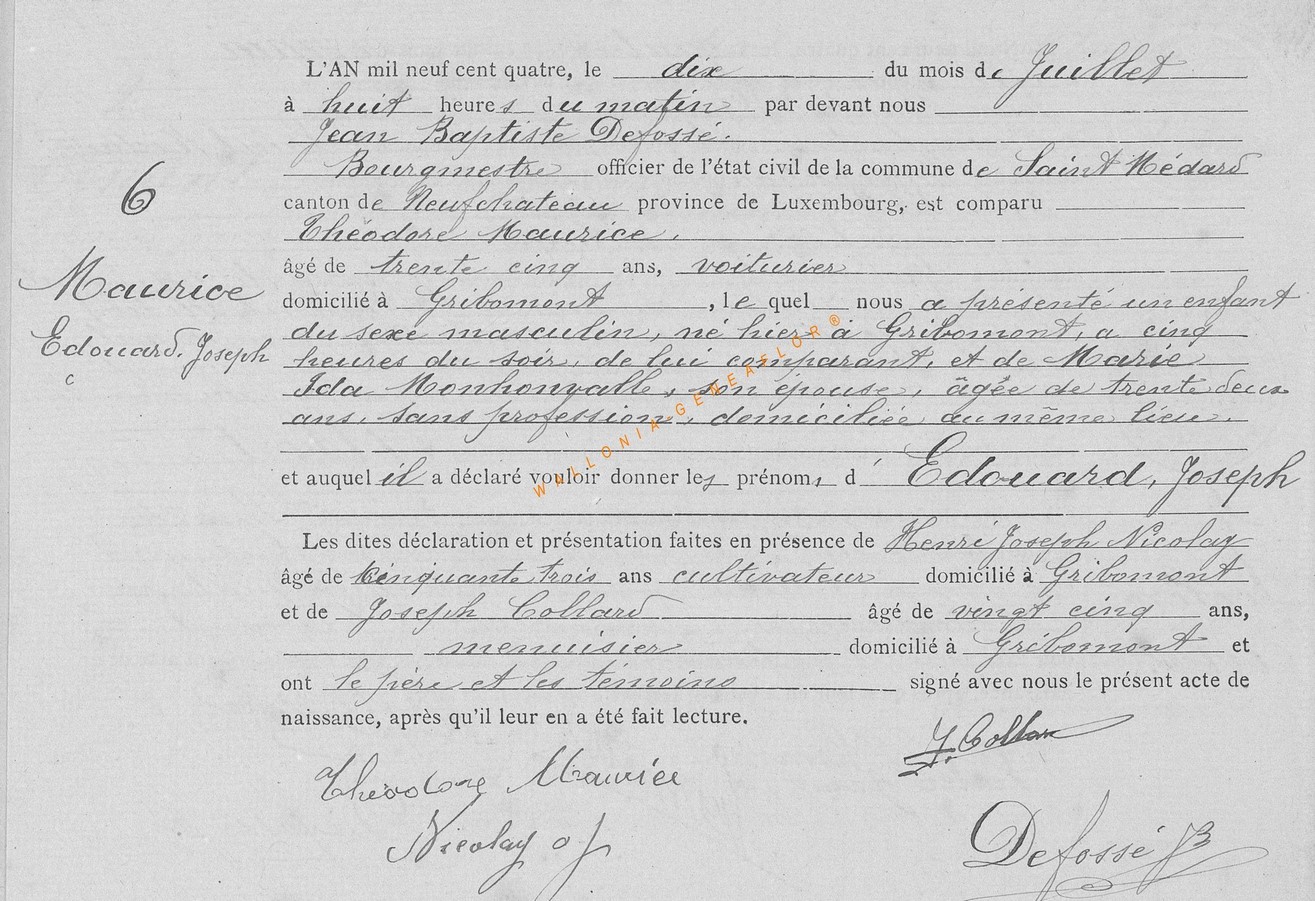 L'AN mil neuf cent quatre, le dix du mois de Juillet
à huit heures du matin par devant nous
Jean Baptiste Defossé.
Bourgmestre officier de l'état civil de la commune de Saint Médard
canton de Neufchateau province de Luxembourg, est comparu
Théodore Maurice.
âgé de trente cinq ans, voiturier
domicilié à Gribomont, le quel nous a présenté un enfant
du sexe masculin, né hier à Gribomont, a cinq
heures du soir, de lui comparant, et de Marie
Ida Monhonvalle, son épouse, âgée de trente deux
ans, sans profession, domiciliée au même lieu.
et auquel il a déclaré vouloir donner les prénoms d' Edouard, Joseph
Les dites déclaration et présentation faites en présence de Henri Joseph Nicolay
âgé de cinquante trois ans cultivateur domicilié à Gribomont
et de Joseph Collard âgé de vingt cinq ans,
menuisier domicilié à Gribomont et
ont le père et les témoins signé avec nous le présent acte de
naissance, après qu'il leur en a été fait lecture.
6
Maurice
Edouard. Joseph
c
WALLONIA-GENEAFLOR®
J. Collar
Théodore Maurice
Nicolay
Defossé JB